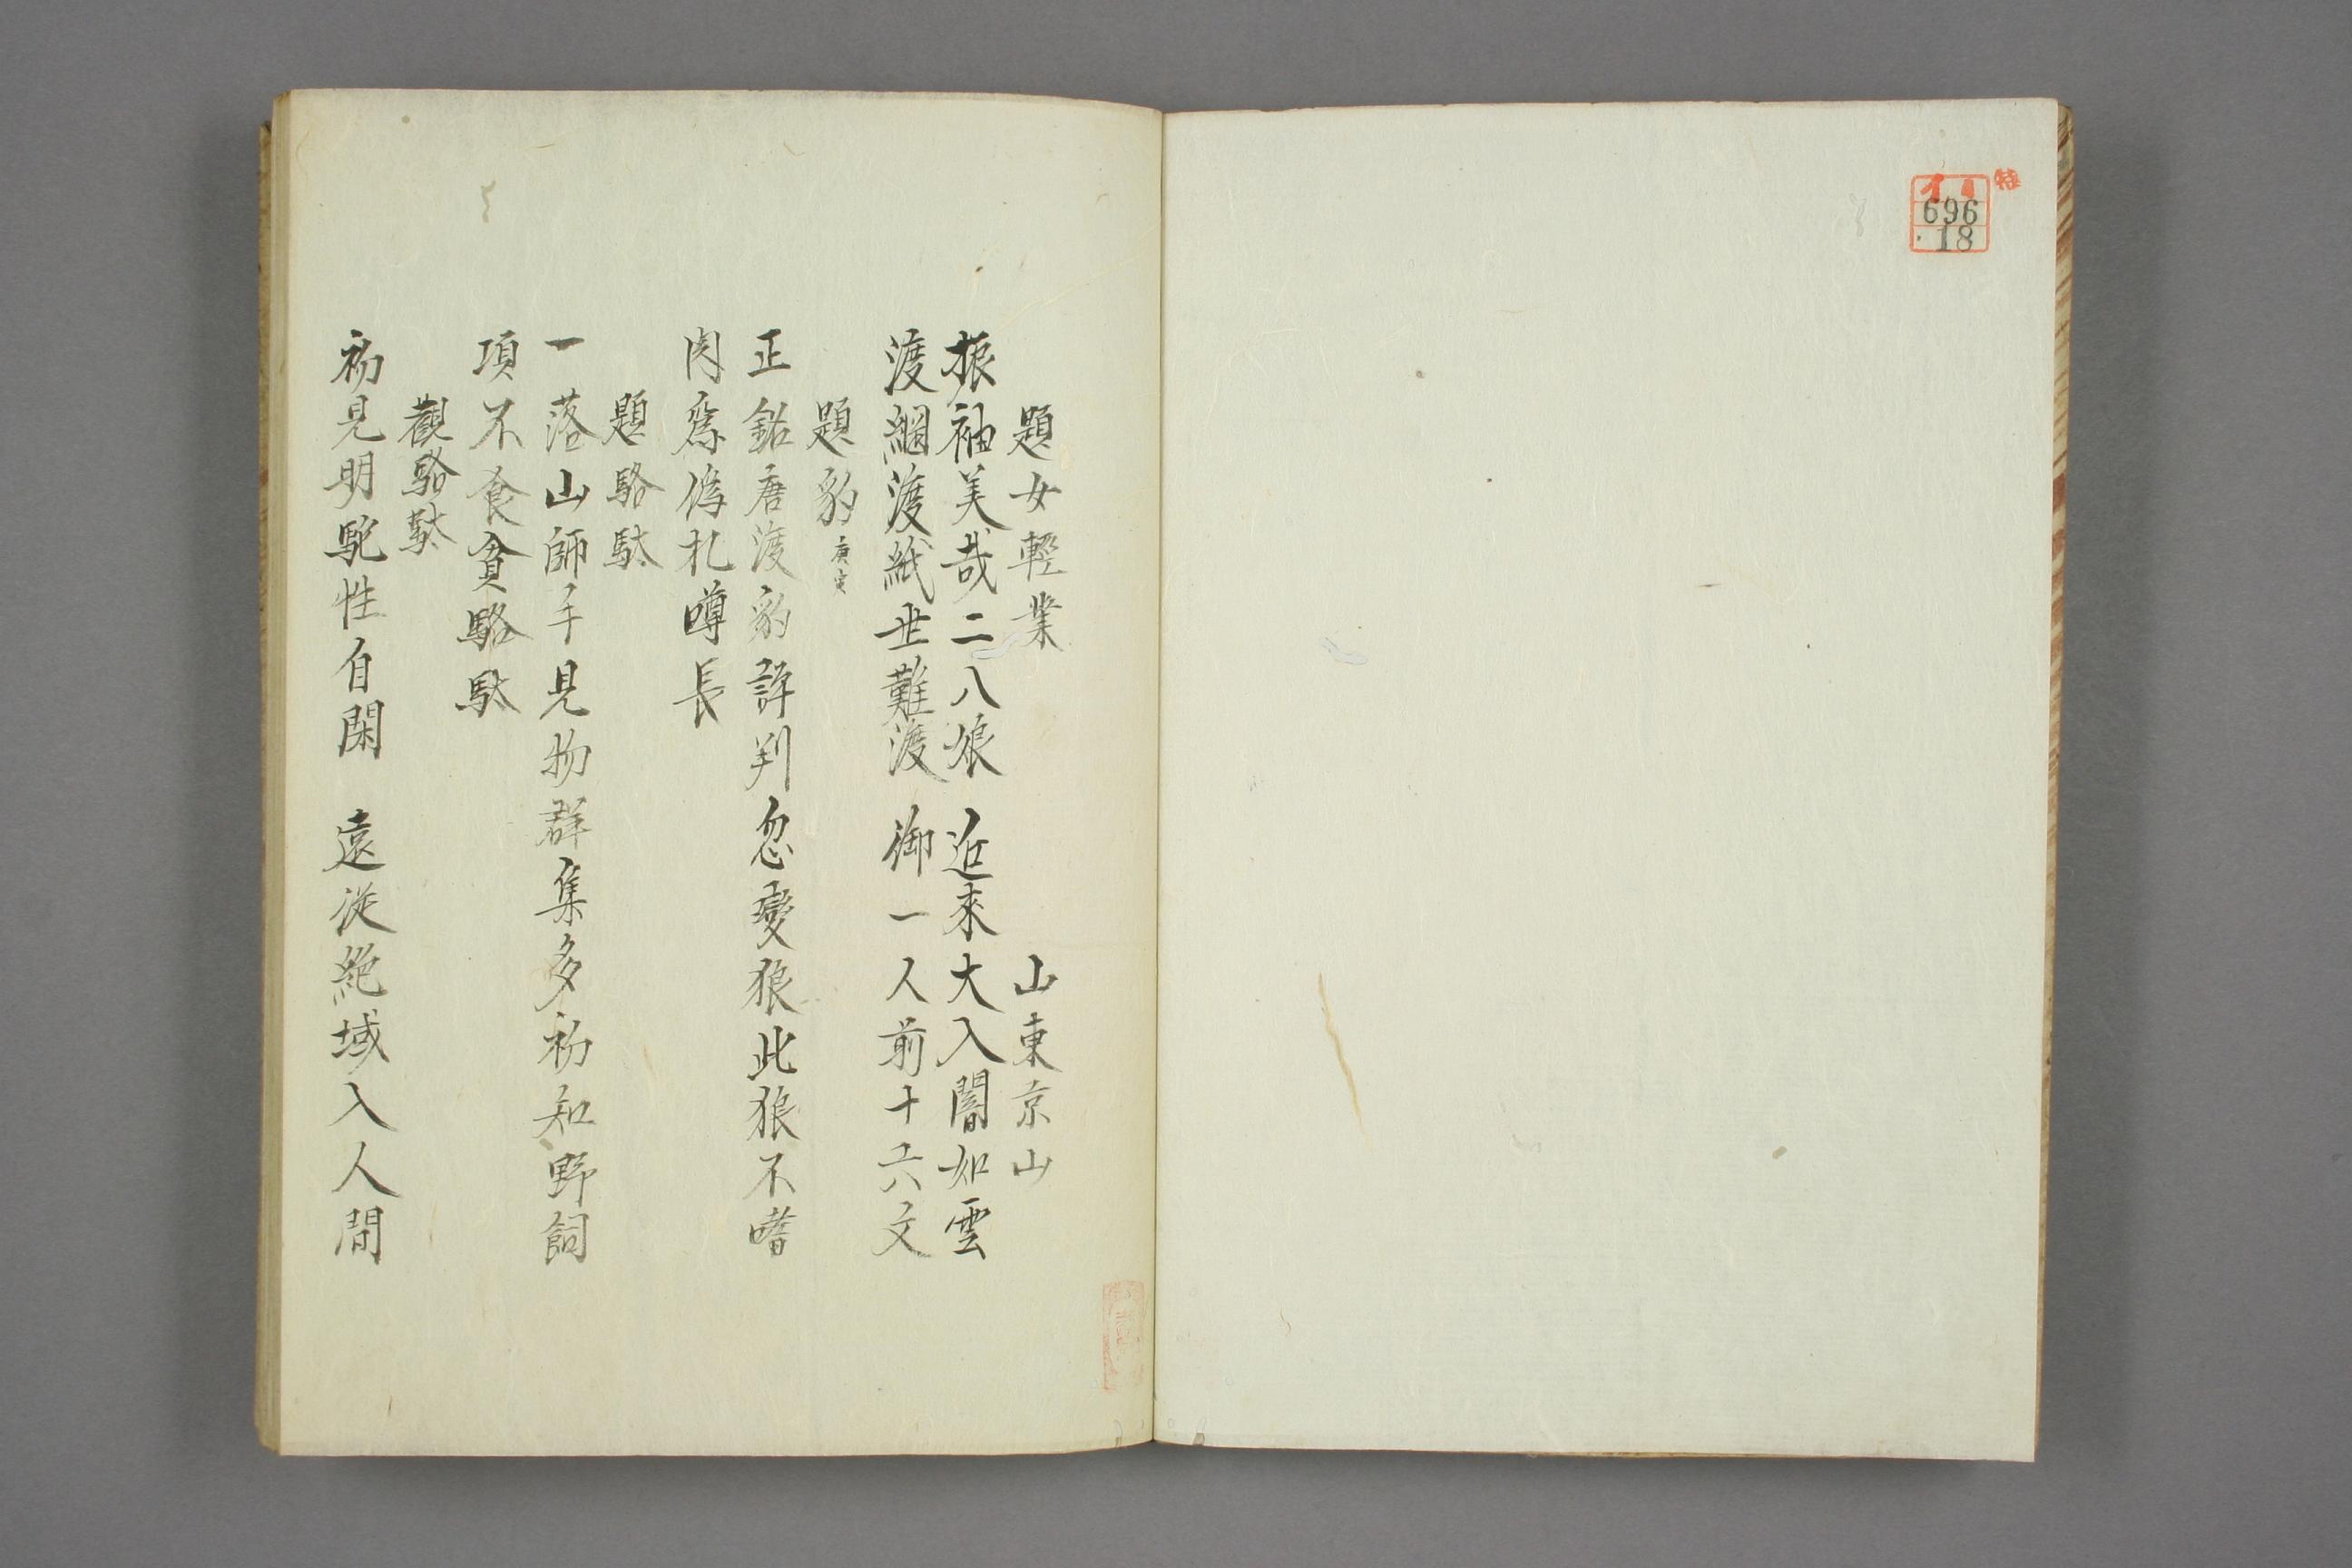 特
イ1
696
18
題女輕業 山東京山
振袖美哉二八娘 近來大入闇如雲
渡綱渡紙世難渡 御一人前十六文
題豹 庚寅
正銘唐渡豹評判忽變狼此狼不嗜
肉爲偽札噂長
題駱駄
一落山師手見物群集多初知野飼
項不食貧駱駄
觀駱駄
初見明駝性自閑 遠從絶域入人間